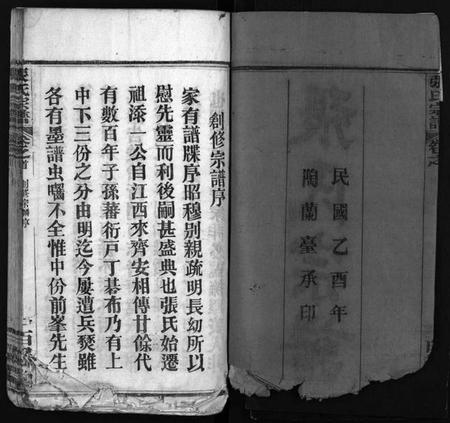 張氏宗譜 卷之
民國乙酉年
陶蘭臺承印
創修宗譜序
家有譜牒序昭穆別親疏明長幼所以
慰先靈而利後嗣甚盛典也張氏始遷
祖添一公自江西來齊安相傳廿餘代
有數百年子孫蕃衍戶丁碁布乃有上
中下三份之分由明迄今屢遭兵燹雖
各有墨譜虫嚙不全惟中份前峯先生
張氏宗譜 卷之首 創修宗譜序